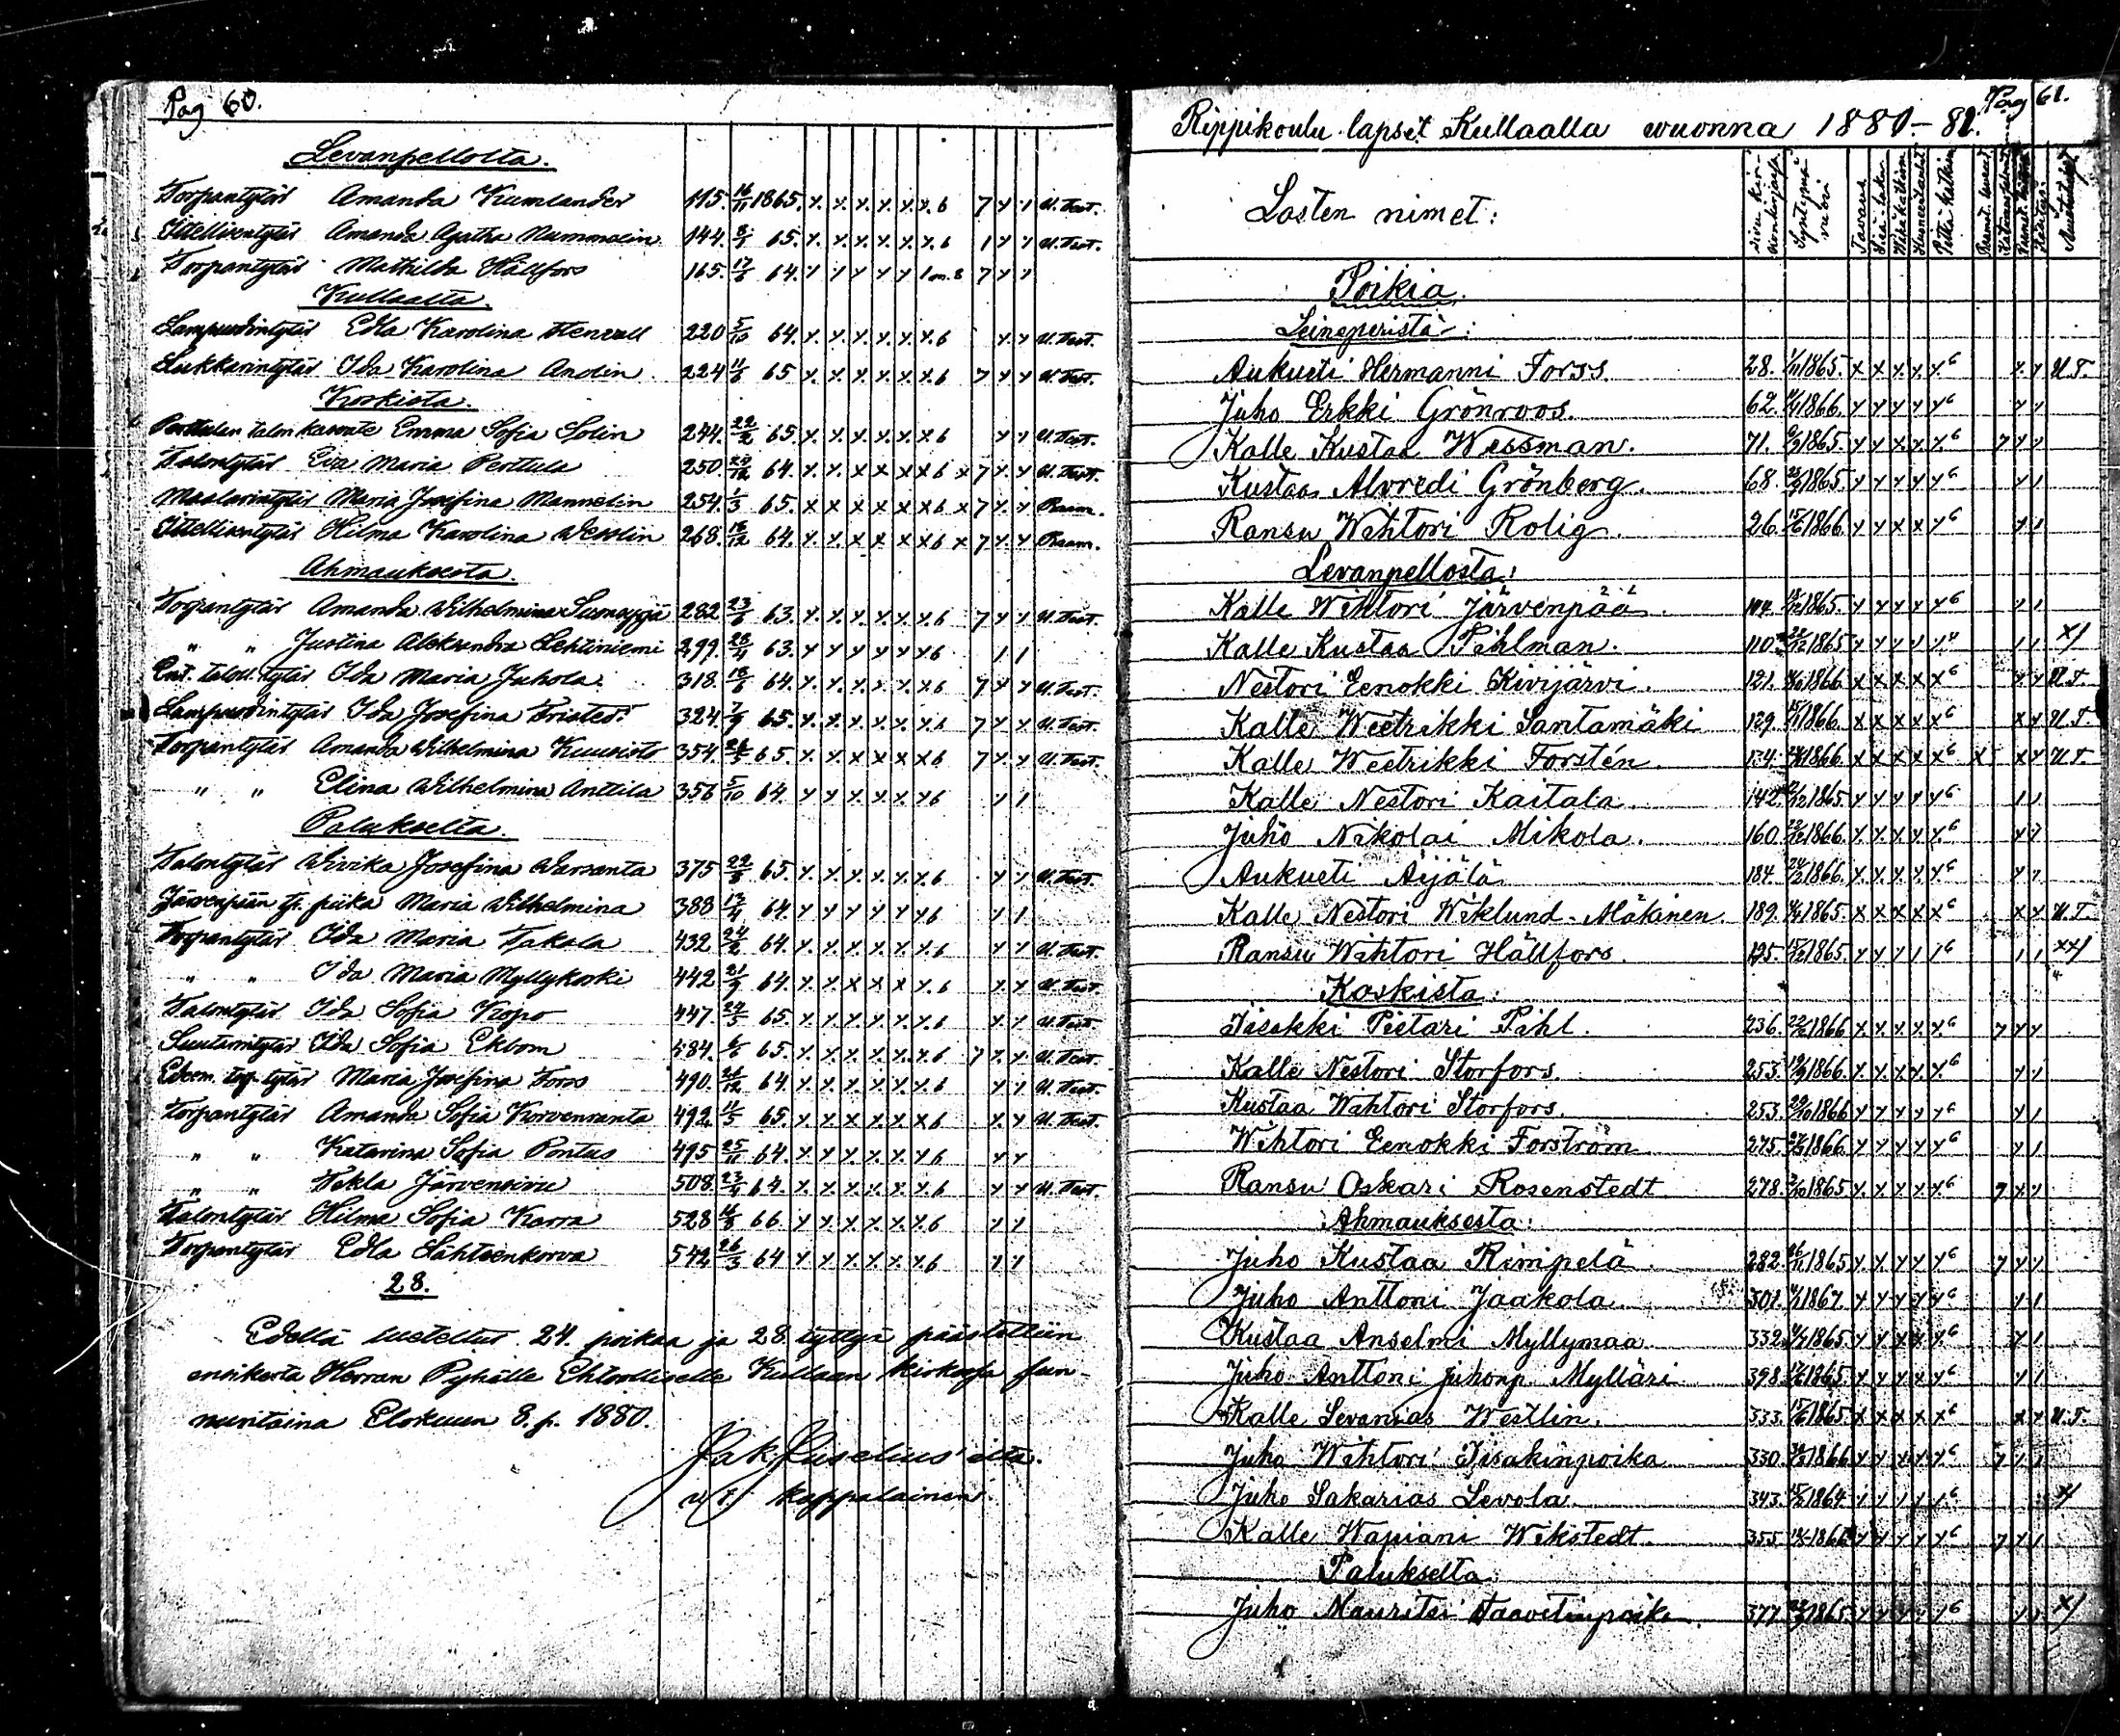 Pag 60.
Levanpellolta.
Torpantytär Amanda Kumlander 115. 16/11 1865. x. x. x. x. x. x. 6 7 x 1 U. Test.
Ittellisentytär Amanda Agatha Nummelin 144. 65. x. x. x. x. x. x. 6 1 x x U. Test.
Torpantytär Mathilda Hällfors 165. 17/6 64. 7 x x
Kullaalta.
Lampuodintytär Edla Karolina Stenvall 220 5/10 64. x. x. x. x. x. x. 6 x. x U. Test.
Lukkarintytär Ida Karolina Andin 224 11/6 65 x. x. x. x. x. x. 6 7 x x U. Test.
Koskista.
Perttulan talon kasvate Emma Sofia Solin 244. 22/2 65. x. x. x. x. x. x 6 x 1 U. Test.
Talontytär Eva Maria Perttula 250. 24/12 64. x. x. x x x x 6 x 7 x. x U. Test.
Maalarintytär Maria Josefina Mannelin 254. 1/3 65. x x x x x x 6 x 7 x. x Raam.
Ittellisentytär Hilma Karolina Wesslin 268. 18/12 64. x. x. x x x x 6 x 7 x. x Raam.
Ahmaukselta.
Torpantytär Amanda Wilhelmina 282 23/6 63. x. x. x. x. x. x. 6 7 x x U. Test.
" " Justina Aleksandra Lehtiniemi 299. 28/4 63. x x x x x x 6 1 1
talon. tytär Ida Maria Juhola. 318. 18/6 64. x. x. x. x. x. x 6 7 x x U. Test.
Lampuodintytär Ida Josefina Fristedt 324 7/9 65. x. x. x. x. x. x. 6 7 x x U. Test.
Torpantytär Amanda Wilhelmina Kuusisto 354. 65. x. x x x x x 6 7 x x U. Test.
" " Elina Wilhelmina Anttila 356 5/10 64. x x x. x x x 6 x 1
Palukselta.
Talontytär Wivika Josefina Warsanta 375 22/8 65. x. x. x. x. x. x. 6 x x U. Test.
Järvenpään piika Maria Wilhelmina 388 13/4 64. x x x x x x 6 x 1
Torpantytär Ida Maria Takala 432 24/2 64. x. x. x. x. x. x. 6 x 1 U. Test.
" " Ida Maria Myllykoski 442 21/9 64. x x x x x x. 6 x x U. Test.
Talontytär Ida Sofia Kopo 447. 24/5 65. x. x. x. x. x. x. 6 x x U. Test.
Suutarintytär Ida Sofia Ekbom 484. 65. x. x. x. x. x. x. 6 7 x. x. U. Test.
Edesm. torp. tytär Maria Josefina Forss 490. 21/12 64. x. x. x. x. x. x. 6 x 1 U. Test.
Torpantytär Amanda Sofia Korvenranta 492. 11/5 65. x x x x. x. x 6 x. x U. Test.
" " Katarina Sofia Pontus 495 25/11 64. x x. x. x. x. x 6 x x
" " Tekla Järvensivu 508. 23/4 64. x. x. x. x. x. x. 6 x x U. Test.
Talontytär Hilma Sofia Karra 528 66. x x x. x. x. x. 6 x 1
Torpantytär Edla Lähteenkorva 542 26/3 64 x. x. x. x. x. x. 6 x 1
28.
Edellä luetellut 24. poikaa ja 28. tyttyä päästettiin
ensikerta Herran Pyhälle Ehtoolliselle Kullaan kirkossa sun-
nuntaina Elokuun 8. p. 1880.
v. t. kappalainen.
Pag 61.
Rippikoulu-lapset Kullaalla wuonna 1881.-82.
Lasten nimet:
Poikia.
Leineperistä:
Aukusti Hermanni Forss. 28. 1/11 1865. x x x. x. x. 6 x. x U. T.
Juho Erkki Grönroos. 62. 1866. x x x x x 6 x x
Kalle Kustaa Wessman. 71. 1865. x x x. x. x. 6 7 x x
Kustaa Alvredi Grönberg. 68. 1865. x x x x. x 6 x 1
Ransu Wihtori Rolig. 26. 1866. x x x x x 6 x 1
Levanpellosta:
Kalle Wihtori Järvenpää 104. 18/12 1865. x x x x x 6 x 1
Kalle Kustaa Pihlman. 110. 22/12 1865 x x x x x 4 1 1 x/
Nestori Eenokki Kivijärvi. 121. 1866 x x x x x 6 x x U. T.
Kalle Weetrikki Santamäki 129. 1866. x x x x x 6 x x U. T.
Kalle Weetrikki Forstén. 134. 1866. x x x x x 6 x x x U. T.
Kalle Nestori Kaitala. 142. 1865. x x x x x 6 1 1
Juho Nikolai Mikola. 160. 1866. x. x. x. x. x. 6 x x
Aukusti Äijälä 184. 24/2 1866. x. x. x. x. x 6 x x
Kalle Nestori Wiklund-Mäkinen. 189. 1865. x x x x x 6 x x U. T.
Ransu Wihtori Hällfors. 195. 1865. x x x 1 1 6 1 1 xx/
Koskista:
Iisakki Pietari Pihl. 236. 1866 x. x. x. x. x. 6 7 x x
Kalle Nestori Storfors. 253. 1866. x. x. x. x. x. 6 x x
Kustaa Wihtori Storfors. 253. 29/10 1866 x x x x x 6 x 1
Wihtori Eenokki Forström 275. 1866. x x x x x 6 x 1
Ransu Oskari Rosenstedt 278. 1865 x. x. x. x. x. 6 7 x x
Ahmauksesta:
Juho Kustaa Rimpelä 282. 26/11 1865 x. x. x. x x 6 7 x x
Juho Anttoni Jaakola. 301. 1867. x x x x x 6 x 1
Kustaa Anselmi Myllymaa 332. 1865 x x x x x. 6 x 1
Juho Anttoni Juhonp. Mylläri 398. 1865. x x x x x 6 x 1
Kalle Levanias Westlin. 333. 1865 x x x x x 6 x x U. T.
Juho Wihtori Iisakinpoika 330. 1866 x x x x x 6 7 x 1
Juho Sakarias Levola. 343. 1864 x x x x x 6 x/
Kalle Wapiani Wikstedt. 355. 1866 x x x x x 6 7 x 1
Palukselta.
Juho Mauritsi Taavetinpoika. 377. 1865. x x x x x 6 x x x/